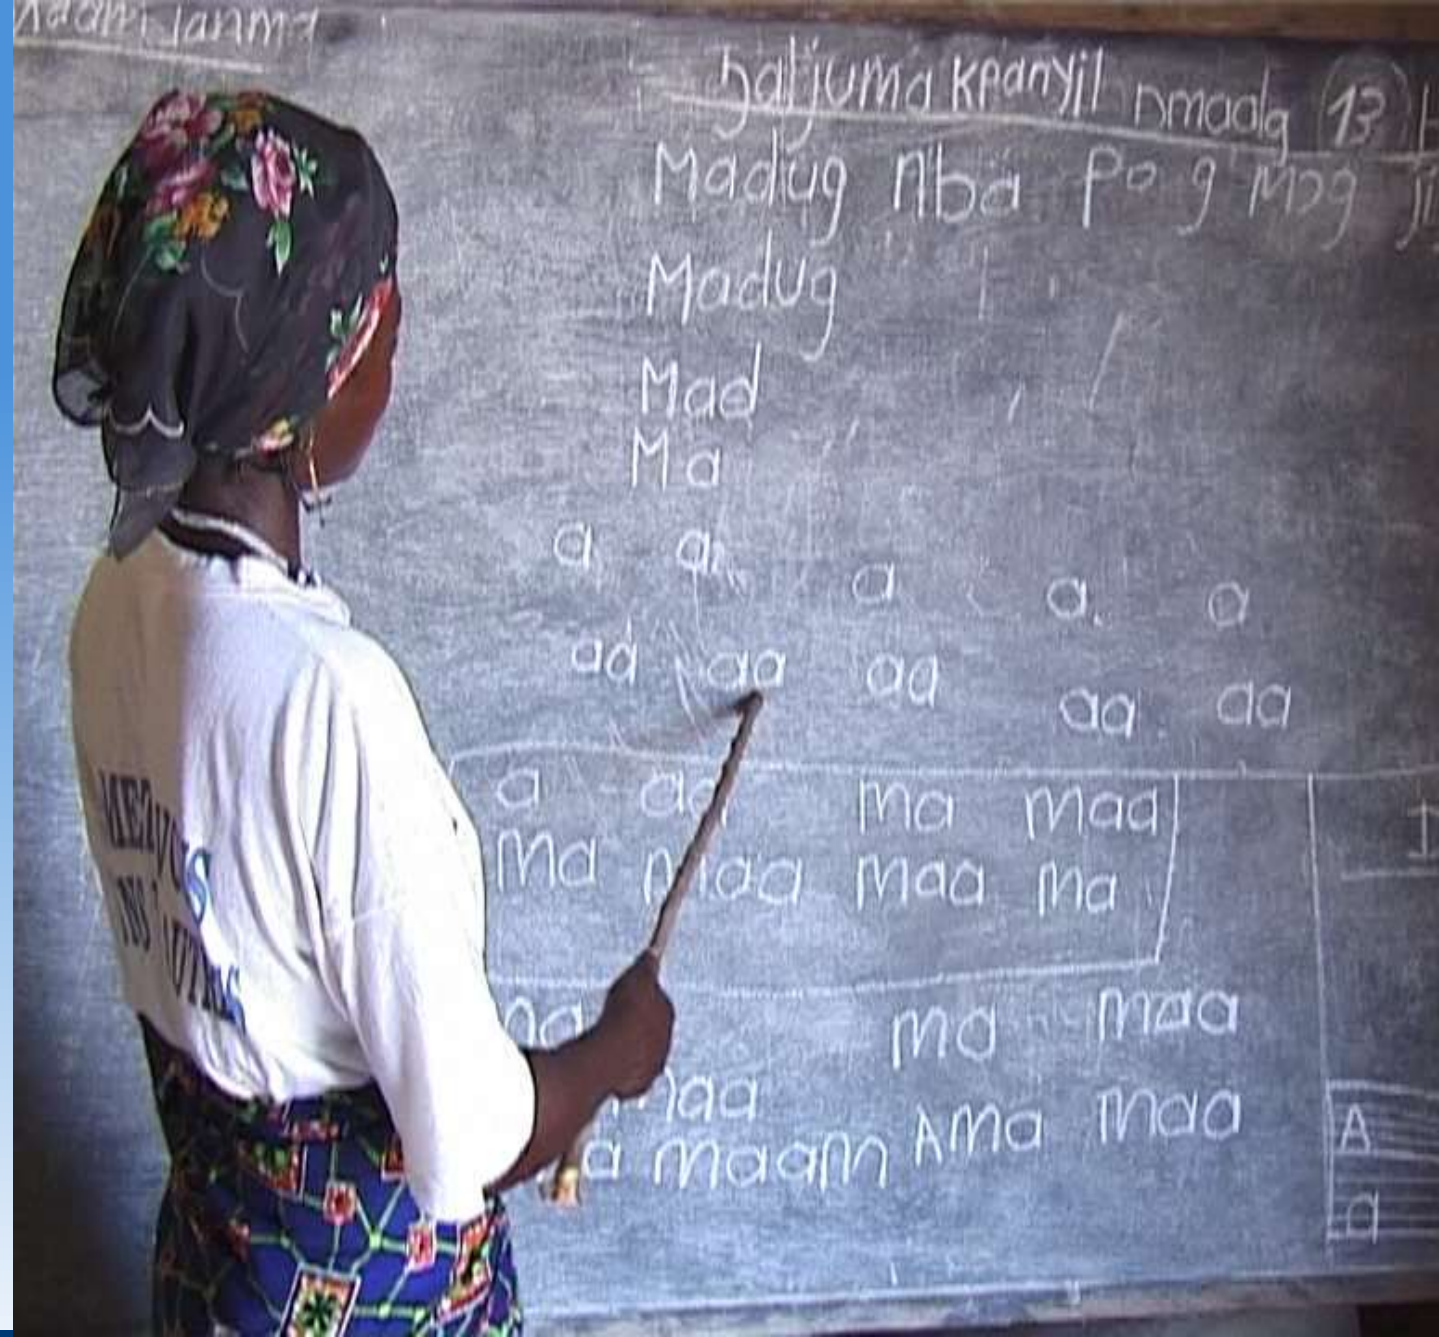 ŋaljuma kpanyil nmaalg 13
Madug nba pog mɔg
Madug
Mad
Ma
a a a a a
aa aa aa aa aa
a aa ma maa
ma maa maa ma
ma maa
maa Ama maa
a maam
A
a